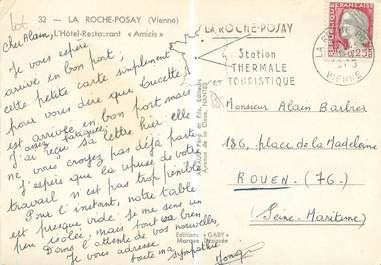 32 — LA ROCHE-POSAY (Vienne)
L'Hôtel-Restaurant « Amicis »
Cher Alain,
Je vous espère
arrivé en bon port;
cette petite carte simplement
pour vous dire que Lucette
est arrivée en bon port mais
assez fatiguée.
J'ai reçu sa lettre hier: elle
ne vous croyez pas déjà parti.
J'espère que la reprise de votre
travail n'est pas trop pénible
Pour l'instant, notre table
est presque vide: Je me sens un
peu isolée, mais tout va bien
Dans l'attente de vos nouvelles,
Je vous adresse
toute ma sympathie
LA ROCHE-POSAY
Station
THERMALE
ET
TOURISTIQUE
REPUBLIQUE FRANÇAISE
0,25
LA ROCHE
VIENNE
Avenue de la Close, NANTES
Editions « GABY »
Marque Déposée
Monsieur Alain Barbier
186, place de la Madeleine
ROUEN (76.)
(Seine-Maritime)